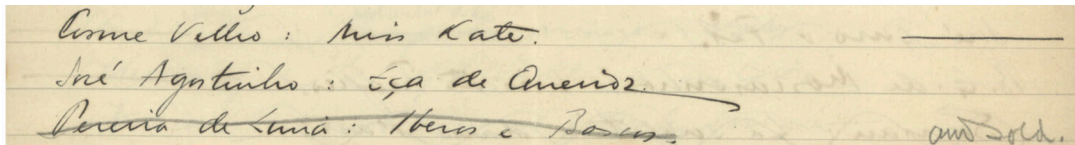 Cosme Velho: Miss Kate.
José Agostinho: Eça de Queiroz.
Pereira de Lima: Iberos e Bascos.